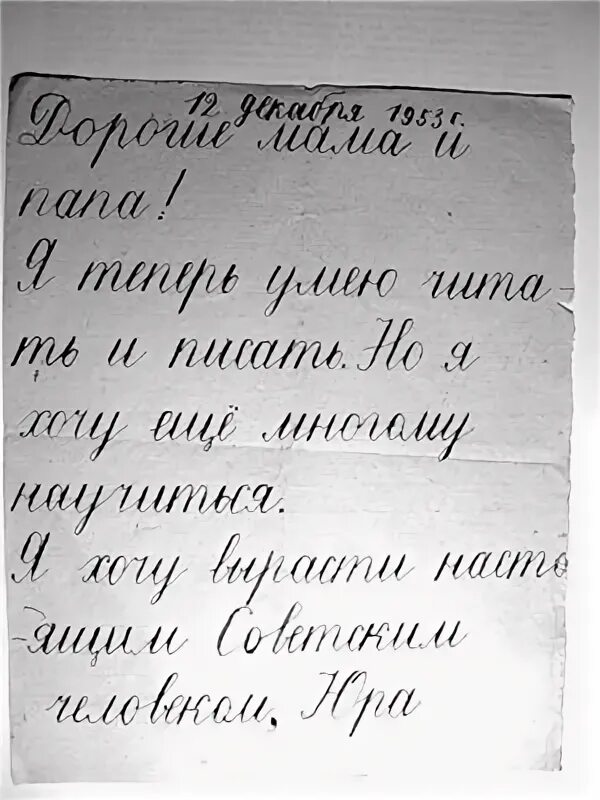 12 декабря 1953 г.
Дорогие мама и
папа!
Я теперь умею чита-
ть и писать. Но я
хочу ещё многому
научиться.
Я хочу вырасти насто
-ящим Советским
человеком, Юра